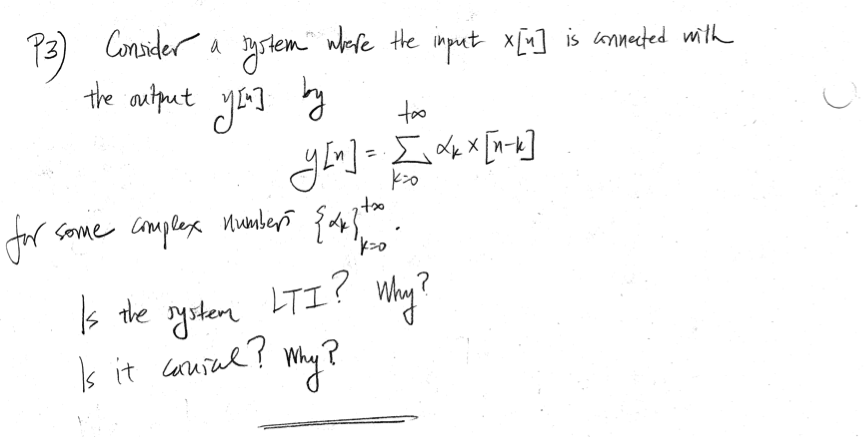 P3) Consider a system where the input x[n] is connected with
the output y[n] by
y[n] = ∑_{k=0}^{+∞} α_k x[n-k]
for some complex numbers {α_k}_{k=0}^{+∞}.
Is the system LTI? Why?
Is it causal? Why?